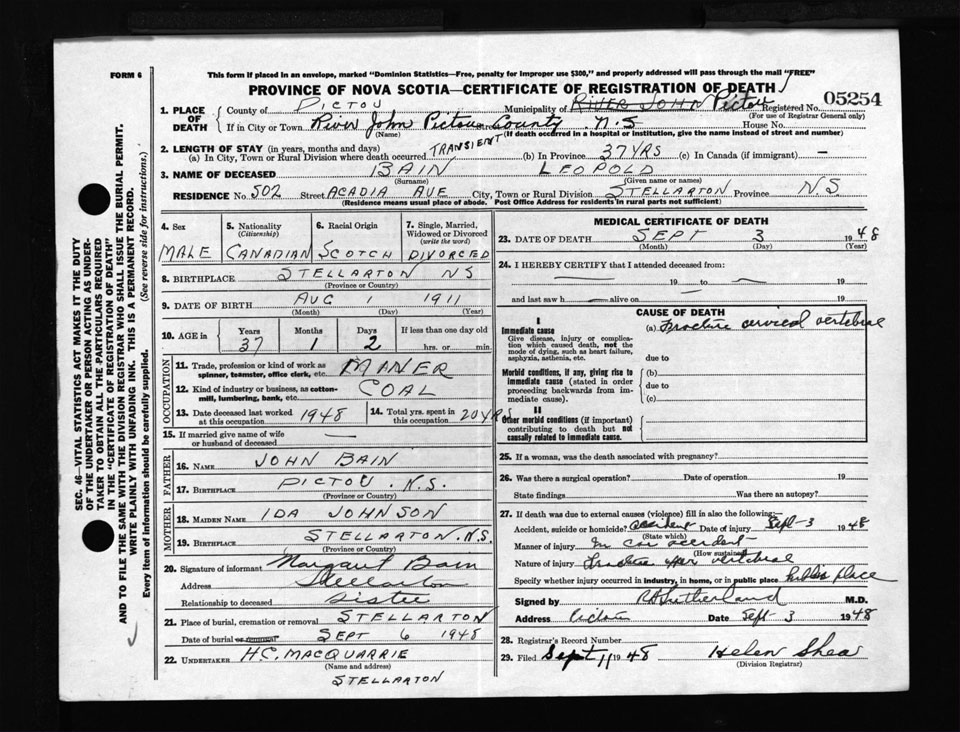 FORM 6
This form if placed in an envelope, marked "Dominion Statistics—Free, penalty for improper use $300," and properly addressed will pass through the mail "FREE"
PROVINCE OF NOVA SCOTIA—CERTIFICATE OF REGISTRATION OF DEATH
1. PLACE OF DEATH County of PICTOU Municipality of RIVER JOHN Pictou Registered No. 05254
(For use of Registrar General only)
If in City or Town River John Pictou County N.S House No.
(Name) (If death occurred in a hospital or institution, give the name instead of street and number)
2. LENGTH OF STAY (in years, months and days)
(a) In City, Town or Rural Division where death occurred TRANSIENT (b) In Province 37 YRS (c) In Canada (if immigrant) —
3. NAME OF DECEASED BAIN LEOPOLD
(Surname) (Given name or names)
RESIDENCE No. 502 Street ACADIA AVE City, Town or Rural Division STELLARTON Province NS
(Residence means usual place of abode. Post Office Address for residents in rural parts not sufficient)
4. Sex MALE
5. Nationality (Citizenship) CANADIAN
6. Racial Origin SCOTCH
7. Single, Married, Widowed or Divorced (write the word) DIVORCED
8. BIRTHPLACE STELLARTON NS
(Province or Country)
9. DATE OF BIRTH AUG 1 1911
(Month) (Day) (Year)
10. AGE in Years 37 Months 1 Days 2 If less than one day old hrs. or min.
OCCUPATION
11. Trade, profession or kind of work as spinner, teamster, office clerk, etc. MANER
12. Kind of industry or business, as cotton-mill, lumbering, bank, etc. COAL
13. Date deceased last worked at this occupation 1948
14. Total yrs. spent in this occupation 20 YRS
15. If married give name of wife or husband of deceased —
FATHER
16. NAME JOHN BAIN
17. BIRTHPLACE PICTOU. N.S.
(Province or Country)
MOTHER
18. MAIDEN NAME IDA JOHNSON
19. BIRTHPLACE STELLARTON. N.S.
(Province or Country)
20. Signature of informant Margaret Bain
Address Stellarton
Relationship to deceased Sister
21. Place of burial, cremation or removal STELLARTON
Date of burial or removal SEPT 6 1948
22. UNDERTAKER H.C. MACQUARRIE
(Name and address)
STELLARTON
MEDICAL CERTIFICATE OF DEATH
23. DATE OF DEATH SEPT 3 1948
(Month) (Day) (Year)
24. I HEREBY CERTIFY that I attended deceased from:
— 19 to — 19
and last saw h — alive on 19
CAUSE OF DEATH
I
Immediate cause (a) Fracture cervical vertebrae
Give disease, injury or complication which caused death, not the mode of dying, such as heart failure, asphyxia, asthenia, etc.
due to
Morbid conditions, if any, giving rise to immediate cause (stated in order proceeding backwards from immediate cause). (b)
due to
(c)
II
Other morbid conditions (if important) contributing to death but not causally related to immediate cause.
25. If a woman, was the death associated with pregnancy?
26. Was there a surgical operation? Date of operation 19
State findings Was there an autopsy?
27. If death was due to external causes (violence) fill in also the following:
Accident, suicide or homicide? accident Date of injury Sept-3 1948
(State which)
Manner of injury In car accident
(How sustained)
Nature of injury Fracture upper vertebral
Specify whether injury occurred in industry, in home, or in public place public place
Signed by R A Sutherland M.D.
Address Pictou Date Sept 3 1948
28. Registrar's Record Number
29. Filed Sept 11 1948 Helen Shea
(Division Registrar)
SEC. 46—VITAL STATISTICS ACT MAKES IT THE DUTY
OF THE UNDERTAKER OR PERSON ACTING AS UNDER-
TAKER TO OBTAIN ALL THE PARTICULARS REQUIRED
IN THE "CERTIFICATE OF REGISTRATION OF DEATH"
AND TO FILE THE SAME WITH THE DIVISION REGISTRAR WHO SHALL ISSUE THE BURIAL PERMIT.
WRITE PLAINLY WITH UNFADING INK. THIS IS A PERMANENT RECORD.
Every item of information should be carefully supplied. (See reverse side for instructions.)